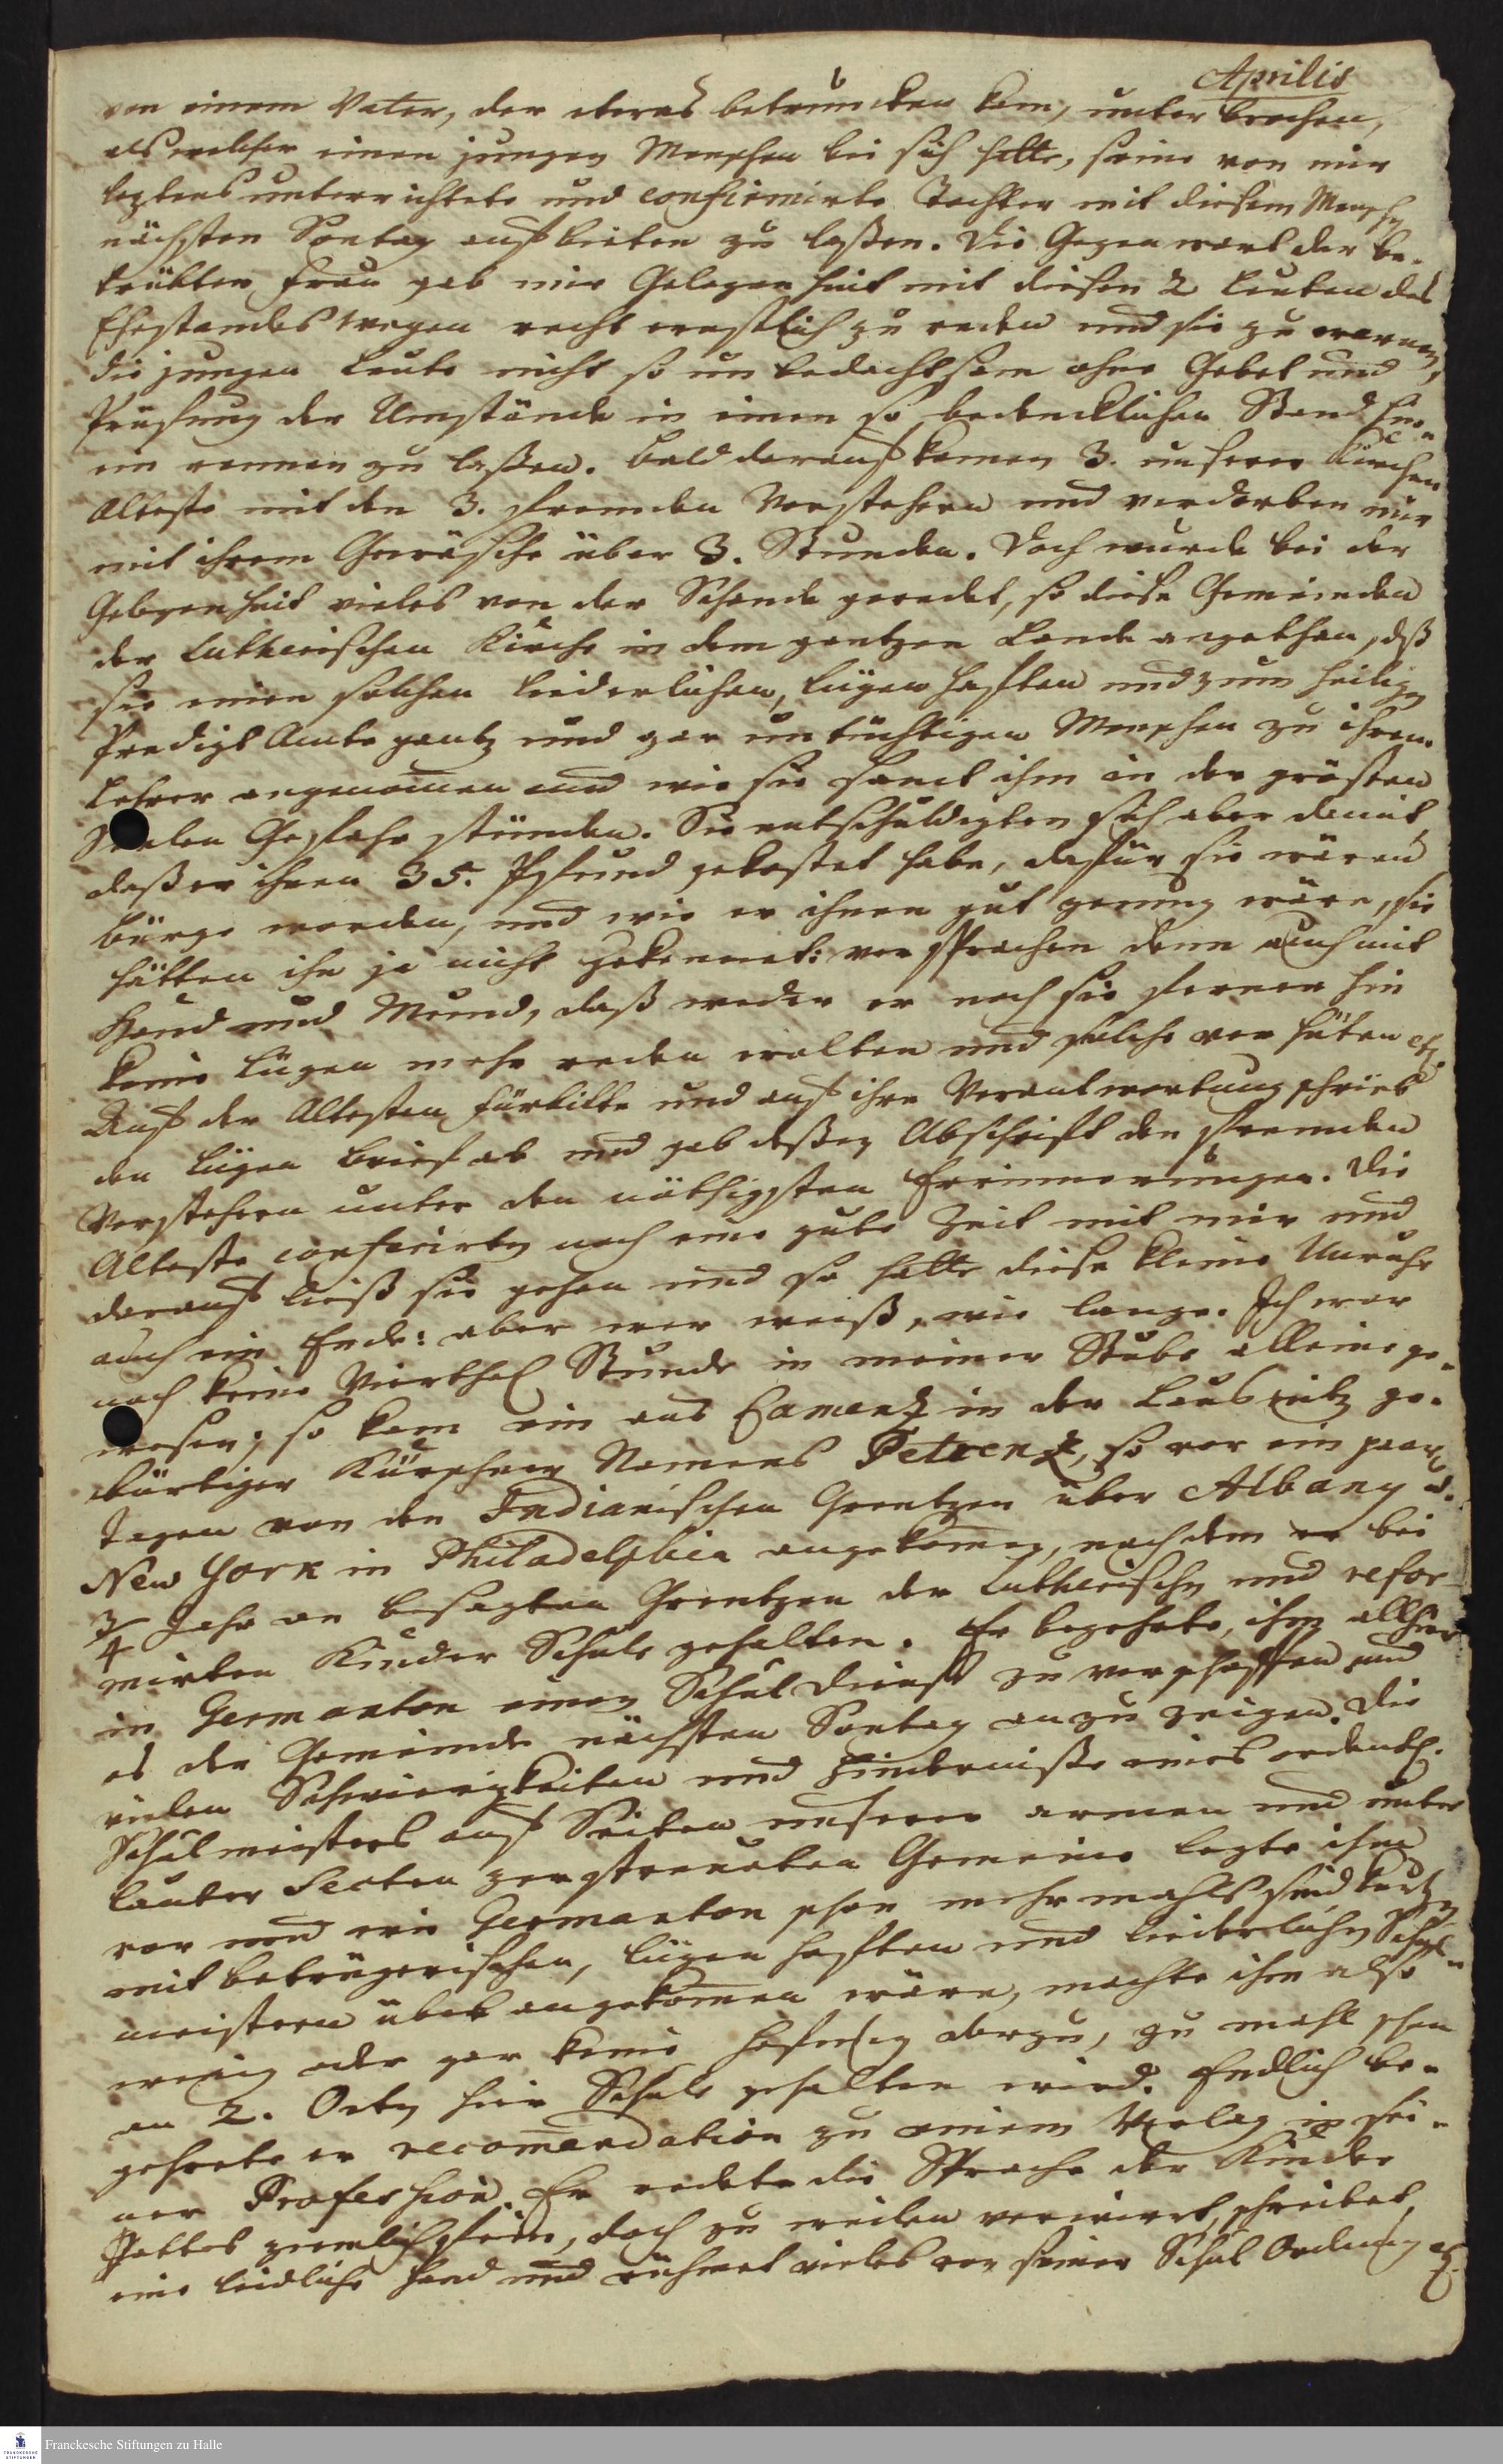 Aprilis
von einem Vater, der etwas betruncken kam, unterbrochen,
als welcher einen jungen Menschen bei sich hatte, seine von mir
leztens unterrichtete und confirmirte Tochter mit diesem Menschen
nächsten Sontag aufbieten zu laßen. Die Gegenwart der be-
trübten Frau gab mir Gelegenheit mit diesen 2 Leuten des
Ehestandes wegen recht ernstlich zu reden und sie zu warnen,
die jungen Leute nicht so unbedachtsam ohne Gebet und
Prüfung der Umstände in einen so bedencklichen Stand hin-
ein rennen zu laßen. Bald darauf kamen 3. unserer Kirchen
Älteste mit den 3. fremden Vorstehern und verdorben mir
mit ihrem Gewäsche über 3. Stunden. Doch wurde bei der
Gelegenheit vieles von der Schande geredet, so diese Gemeinden
der Lutherischen Kirche in dem gantzen Lande angethan, dß
sie einen solchen liederlichen, lügenhafften und zum heiligen
Predigt Amte gantz und gar untüchtigen Menschen zu ihrem
Lehrer angenommen und wie sie samt ihm in der grösten
Seelen Gefahr stünden. Sie entschuldigten sich aber damit,
daß er ihnen 35. Pfund gekostet habe, dafür sie wären
bürge worden, und wie er ihnen gut genung wäre, sie
hätten ihn ja nicht gekennet: versprachen denn auch mit
Hand und Mund, daß weder er noch sie fernerhin
keine Lügen mehr reden wolten und solche verhüten etc.
Auf der Ältesten Fürbitte und auf ihre Verantwortung schrieb
den Lügen Brief ab und gab deßen Abschrift den fremden
Vorstehern unter den nöthigsten Erinnerungen. Die
Älteste conferirten noch eine gute Zeit mit mir und
darauf ließ sie gehen und so hatte diese kleine Unruhe
auch ein Ende: aber wer weiß, wie lange. Ich war
noch keine Viertel Stunde in meiner Stube alleine ge-
wesen; so kam ein aus Camentz in der Lausnitz ge-
bürtiger Kürschner Namens Petrentz, so vor ein paar
Tagen von den Indianischen Grentzen über Albany u.
New York in Philadelphia angekommen, nachdem er bei
3/4 Jahr an besagten Grentzen der Lutherischen und refor-
mirten Kinder Schule gehalten. Er begehrte, ihm allhier
in Germanton einen Schuldienst zu verschaffen und
es der Gemeinde nächsten Sontag anzuzeigen. Die
vielen Schwierigkeiten und Hinderniße eines ordentl.
Schulmeisters auf Seiten unserer armen und unter
lauter Secten zerstreueten Gemeine legte ihm
vor und wie Germanton schon mehrmahls
mit betrügerischen, lügenhafften und liederlichen Schul-
meistern übel angekommen wäre, machte ihm also
wenig oder gar keine Hofnung darzu, zumahl schon
an 2. Orten hier Schule gehalten wird. Endlich be-
gehrete er recommendation zu einem Verlag in sei-
ner Profession. Er redete die Sprache der Kinder
Gottes ziemlich fein, doch zuweilen verwirret, schreibet
eine leidliche Hand und rühmet vieles von seiner Schul Ordnung etc.
Franckesche Stiftungen zu Halle